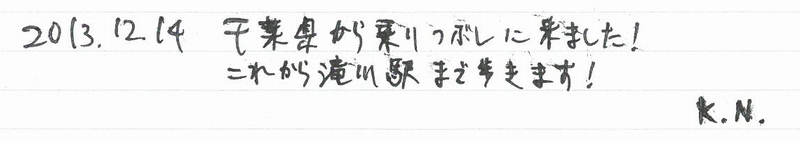 2013.12.14 千葉県から乗りつぶしに来ました!
これから滝川駅まで歩きます!
K.N.